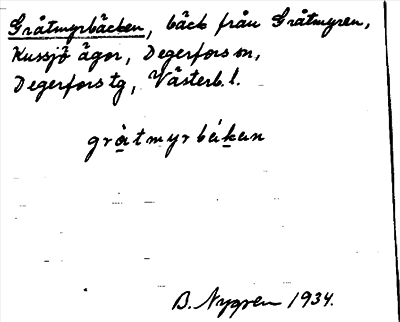 Gråtmyrbäcken, bäck från Gråtmyren,
Kussjö ägor, Degerfors sn,
Degerfors tg, Västerb. l.
gràtmyrbákan
B. Nygren 1934.